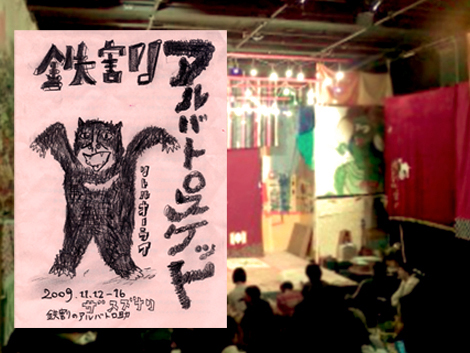 鉄割り
アルバトロスケット
2009.11.12-16
ザ スズナリ
鉄割りのアルバトロ助